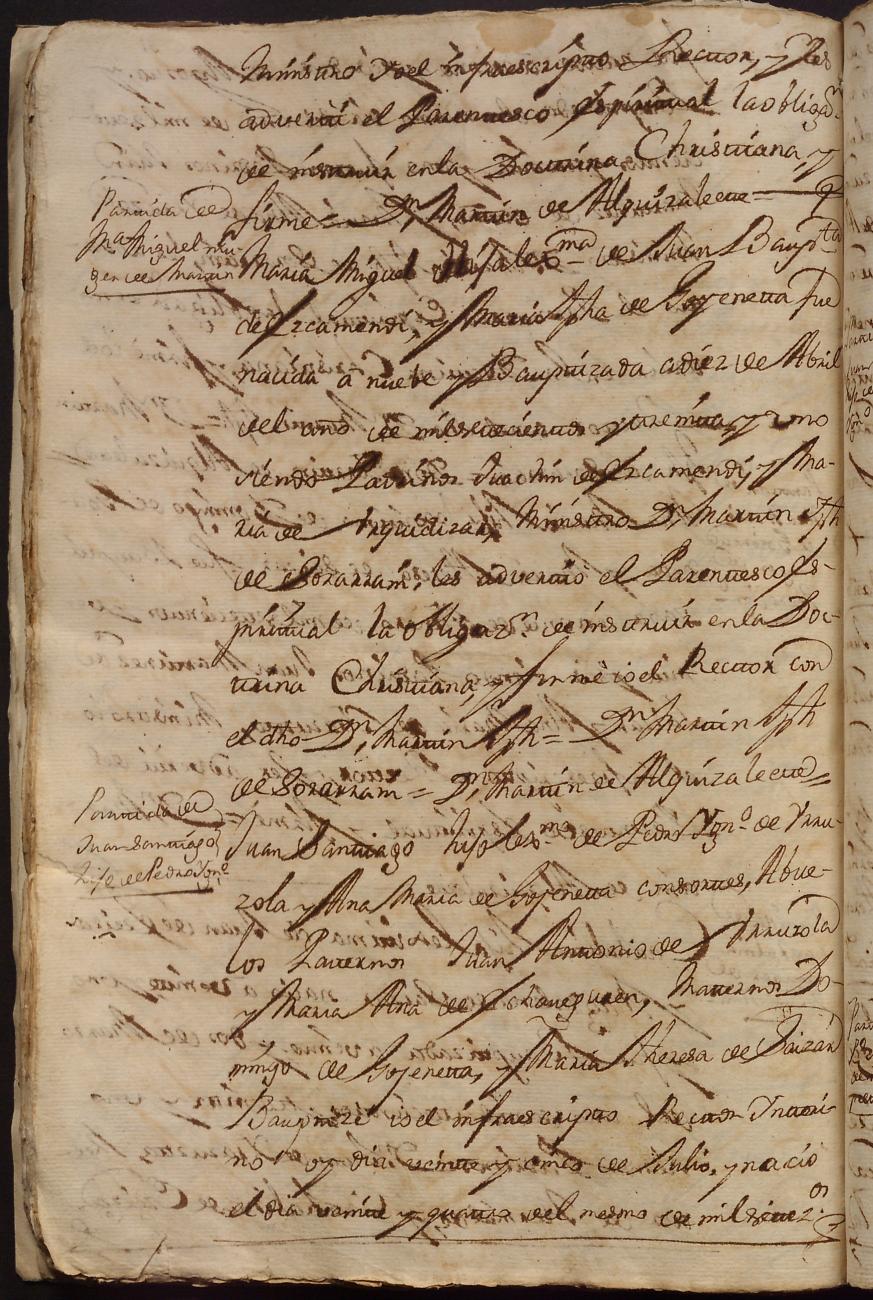 Ministro Yo el infraescripto Rector, y les
adverti el Parentesco Espiritual la obligaⁿ.
de instruir en la Doctrina Christiana, y
firme = Dⁿ. Martin de Alquizalete =
Partida de
Mª Miguel mu-
ger de Martin
Maria Miguel Hija lexᵐᵃ de Juan Bapᵗᵃ
de Ezcamendi, y Maria Jpha de Goyenetta fue
nacida a nuebe y Baptizada a diez de Abril
del año de mil setecientos y treinta, y uno
siendo Padrinos Juachin de Ezcamendi, y Ma-
ria de Yrquidizar, Ministro Dⁿ. Martin Jph
de Gorarram, les advertio el Parentesco Es-
piritual la obligazⁿ. de instruir en la Doc-
trina Christiana, y firmè io el Rector con
el dho Dⁿ. Martin Jph = Dⁿ Martin Jph
de Gorarram = Dⁿ. Martin de Alquizalete =
Partida de
Juan Santiago
hijo de Pedro Ygnº
Juan Santiago hijo lexᵐᵒ de Pedro Ygnº de Urru-
zola y Ana Maria de Goyenetta consortes, Abue-
los Paternos Juan Antonio de Urruzola
y Maria Ana de Echaveguren, Maternos Do-
mingo de Goyenetta, y Maria Theresa de Gaizan
Baptize io el infraescripto Rector Ynteri-
no oy dia veinte y cinco de Julio, y nacio
el dia veinte y quatro del mesmo de mil setezᵒˢ